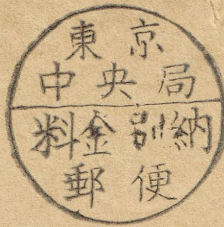 東京
中央局
料金別納
郵便